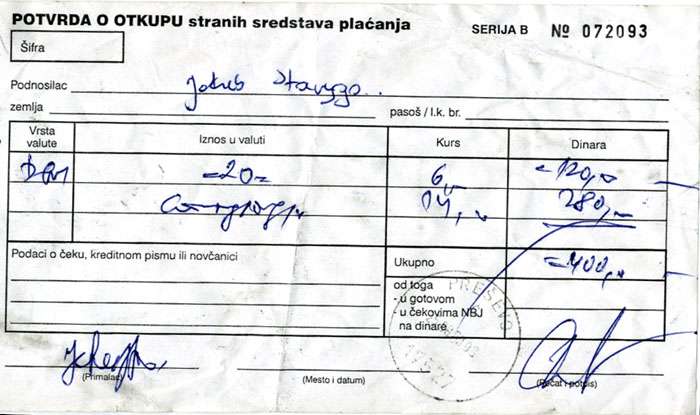 POTVRDA O OTKUPU stranih sredstava plaćanja
SERIJA B № 072093
Šifra
Podnosilac
zemlja pasoš / l.k. br.
Vrsta valute Iznos u valuti Kurs Dinara
=20= 6,- =120,-
14,- 280,-
Podaci o čeku, kreditnom pismu ili novčanici
Ukupno =400,-
od toga
- u gotovom
- u čekovima NBJ
na dinare
PREŠEVO
(Primalac) (Mesto i datum) (Pečat i potpis)